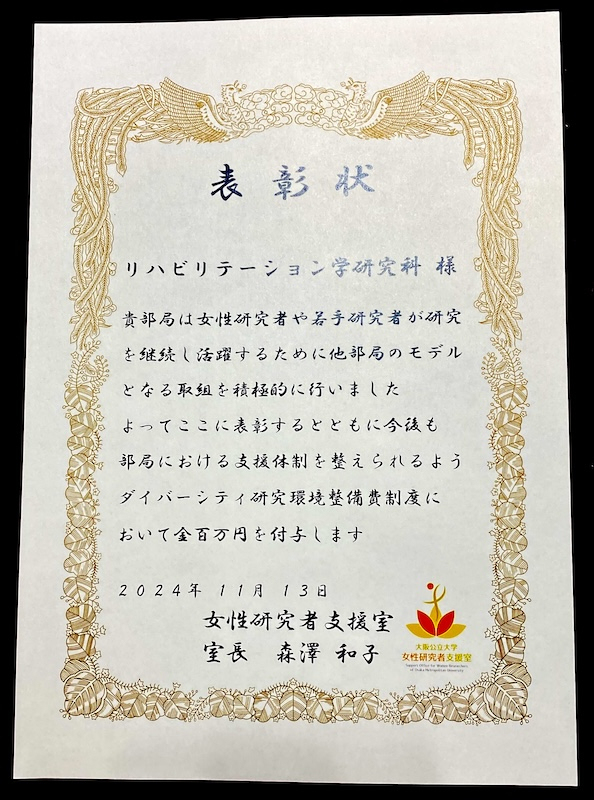 表彰状
リハビリテーション学研究科 様
貴部局は女性研究者や若手研究者が研究
を継続し活躍するために他部局のモデル
となる取組を積極的に行いました
よってここに表彰するとともに今後も
部局における支援体制を整えられるよう
ダイバーシティ研究環境整備費制度に
おいて金百万円を付与します
2024年 11月 13日
女性研究者支援室
室長 森澤 和子
大阪公立大学
女性研究者支援室
Support Office for Women Researchers
of Osaka Metropolitan University